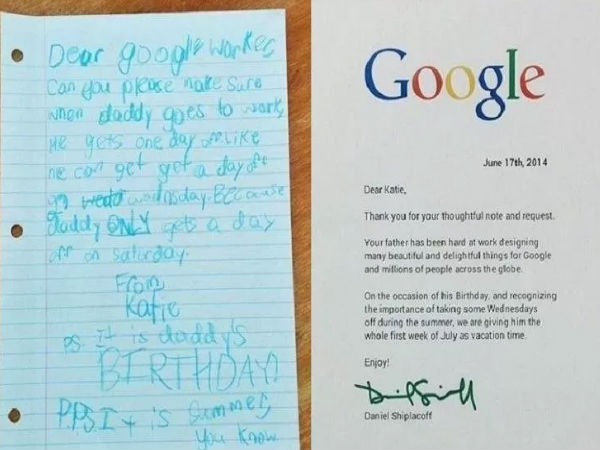 Dear google worker
Can you please make sure
when daddy goes to work,
He gets one day off. Like
he can get get a day off
on wedd wednsday. Because
daddy ONLY gets a day
off on saturday.
From,
Katie
P.S. It is daddy's
BIRTHDAY!
P.P.S. It is summer,
you know
Google
June 17th, 2014
Dear Katie,
Thank you for your thoughtful note and request.
Your father has been hard at work designing
many beautiful and delightful things for Google
and millions of people across the globe.
On the occasion of his Birthday, and recognizing
the importance of taking some Wednesdays
off during the summer, we are giving him the
whole first week of July as vacation time.
Enjoy!
Daniel Shiplacoff